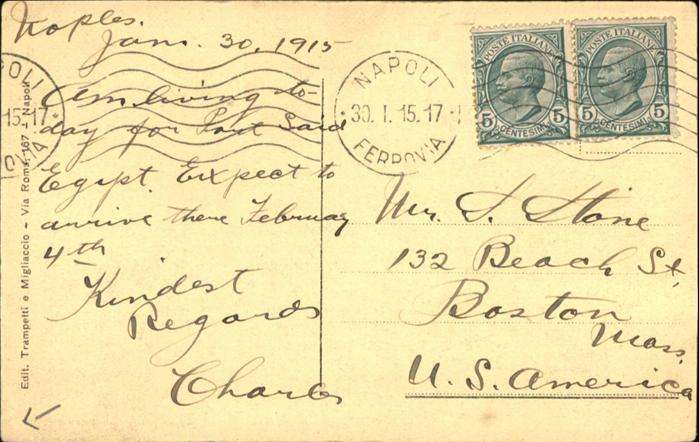 Naples.
Jan. 30, 1915
Am living to-
day for Port Said
Egypt. Expect to
arrive there February
4th
Kindest
Regards
Charles
Edit. Trampetti e Migliaccio - Via Roma, 167 - Napoli
NAPOLI
30. 1. 15. 17
FERROVIA
POSTE ITALIANE
5 CENTESIMI 5
POSTE ITALIANE
5 CENTESIMI 5
Mr. S. Stone
132 Beach St.
Boston
Mass.
U. S. America